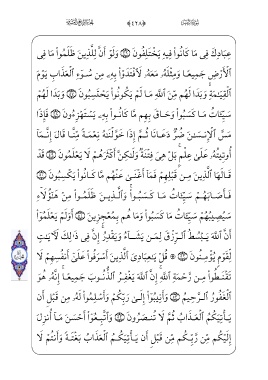 ﴿٤٢٨﴾
عِبَادِكَ فِى مَا كَانُوا۟ فِيهِ يَخْتَلِفُونَ وَلَوْ أَنَّ لِلَّذِينَ ظَلَمُوا۟ مَا فِى
ٱلْأَرْضِ جَمِيعًا وَمِثْلَهُۥ مَعَهُۥ لَٱفْتَدَوْا۟ بِهِۦ مِن سُوٓءِ ٱلْعَذَابِ يَوْمَ
ٱلْقِيَٰمَةِ وَبَدَا لَهُم مِّنَ ٱللَّهِ مَا لَمْ يَكُونُوا۟ يَحْتَسِبُونَ وَبَدَا لَهُمْ
سَيِّـَٔاتُ مَا كَسَبُوا۟ وَحَاقَ بِهِم مَّا كَانُوا۟ بِهِۦ يَسْتَهْزِءُونَ فَإِذَا
مَسَّ ٱلْإِنسَٰنَ ضُرٌّ دَعَانَا ثُمَّ إِذَا خَوَّلْنَٰهُ نِعْمَةً مِّنَّا قَالَ إِنَّمَآ
أُوتِيتُهُۥ عَلَىٰ عِلْمٍ بَلْ هِىَ فِتْنَةٌ وَلَٰكِنَّ أَكْثَرَهُمْ لَا يَعْلَمُونَ قَدْ
قَالَهَا ٱلَّذِينَ مِن قَبْلِهِمْ فَمَآ أَغْنَىٰ عَنْهُم مَّا كَانُوا۟ يَكْسِبُونَ
فَأَصَابَهُمْ سَيِّـَٔاتُ مَا كَسَبُوا۟ وَٱلَّذِينَ ظَلَمُوا۟ مِنْ هَٰٓؤُلَآءِ
سَيُصِيبُهُمْ سَيِّـَٔاتُ مَا كَسَبُوا۟ وَمَا هُم بِمُعْجِزِينَ أَوَلَمْ يَعْلَمُوٓا۟
أَنَّ ٱللَّهَ يَبْسُطُ ٱلرِّزْقَ لِمَن يَشَآءُ وَيَقْدِرُ إِنَّ فِى ذَٰلِكَ لَءَايَٰتٍ
لِّقَوْمٍ يُؤْمِنُونَ ۞ قُلْ يَٰعِبَادِىَ ٱلَّذِينَ أَسْرَفُوا۟ عَلَىٰٓ أَنفُسِهِمْ لَا
تَقْنَطُوا۟ مِن رَّحْمَةِ ٱللَّهِ إِنَّ ٱللَّهَ يَغْفِرُ ٱلذُّنُوبَ جَمِيعًا إِنَّهُۥ هُوَ
ٱلْغَفُورُ ٱلرَّحِيمُ وَأَنِيبُوٓا۟ إِلَىٰ رَبِّكُمْ وَأَسْلِمُوا۟ لَهُۥ مِن قَبْلِ أَن
يَأْتِيَكُمُ ٱلْعَذَابُ ثُمَّ لَا تُنصَرُونَ وَٱتَّبِعُوٓا۟ أَحْسَنَ مَآ أُنزِلَ
إِلَيْكُم مِّن رَّبِّكُم مِّن قَبْلِ أَن يَأْتِيَكُمُ ٱلْعَذَابُ بَغْتَةً وَأَنتُمْ لَا